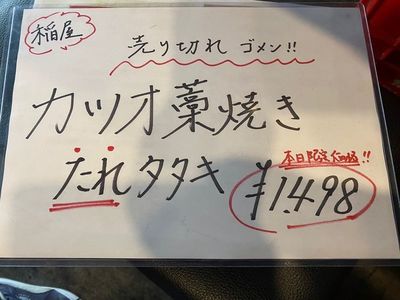 稲屋
売り切れ ゴメン!!
カツオ藁焼き
たれタタキ
本日限定価格!!
¥1.498